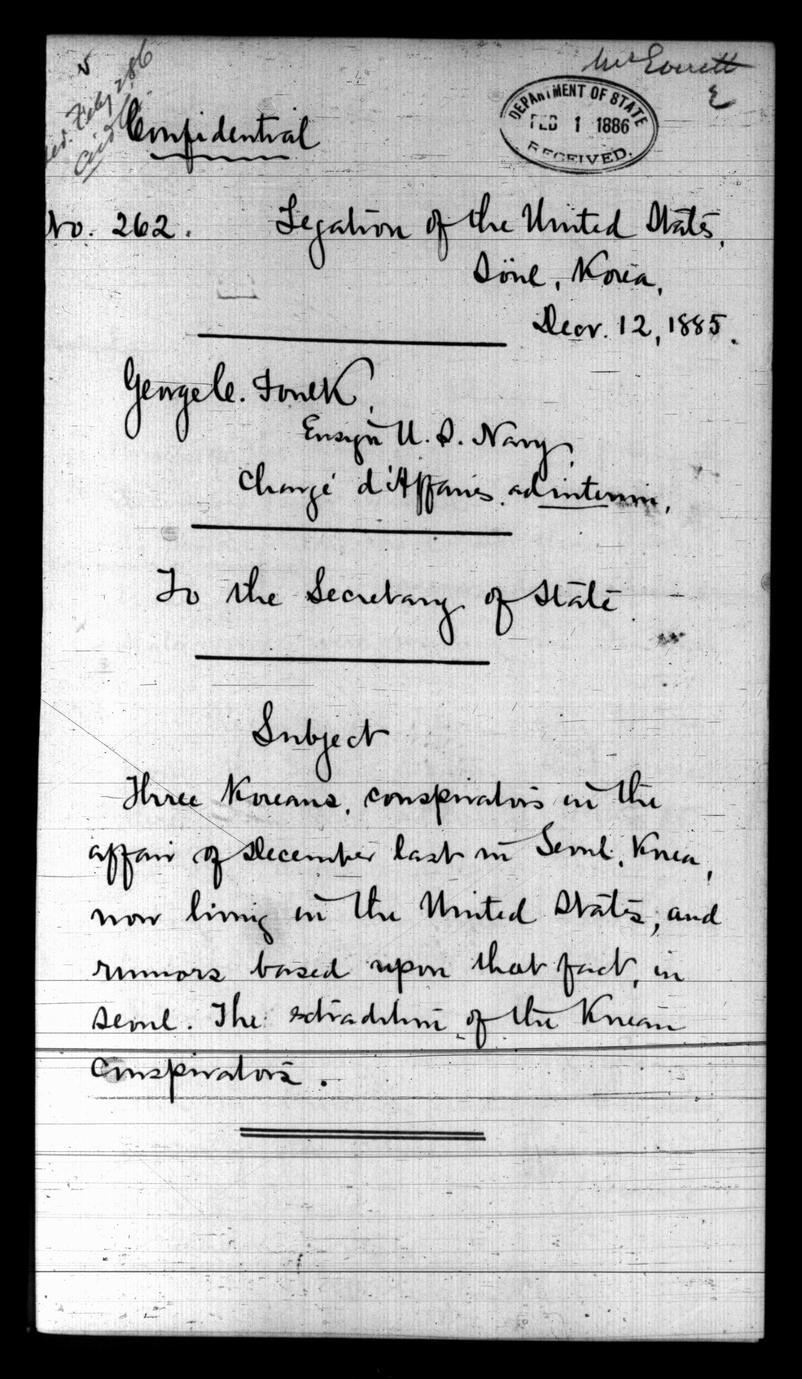 Mr Everett
Feby 2, 86
DEPARTMENT OF STATE
FEB 1 1886
RECEIVED.
Confidential
No. 262. Legation of the United States,
Söul, Korea,
Decr. 12, 1885.
George C. Foulk,
Ensign U. S. Navy,
Chargé d'Affaires ad interim,
To the Secretary of State
Subject
Three Koreans, conspirators in the
affair of December last in Seoul, Korea,
now living in the United States, and
rumors based upon that fact, in
Seoul. The extradition of the Korean
conspirators.